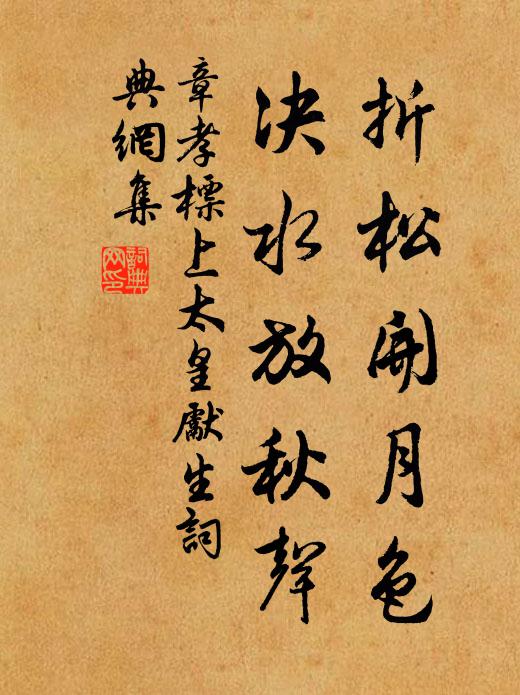 折松開月色
决水放秋聲
章孝標上太皇獻生詞
典網集
詞典網印